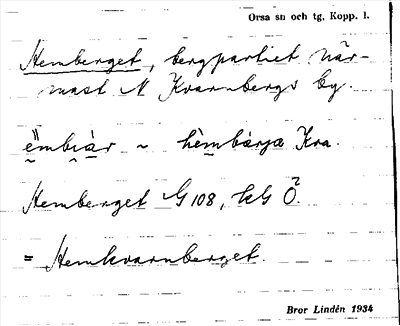 Orsa sn och tg, Kopp. l.
Hemberget, bergpartiet när-
mast N Kvarnbergs by.
~ hèmbárja Kra.
Hemberget G 108, kG Ö.
= Hemkvarnberget.
Bror Lindén 1934